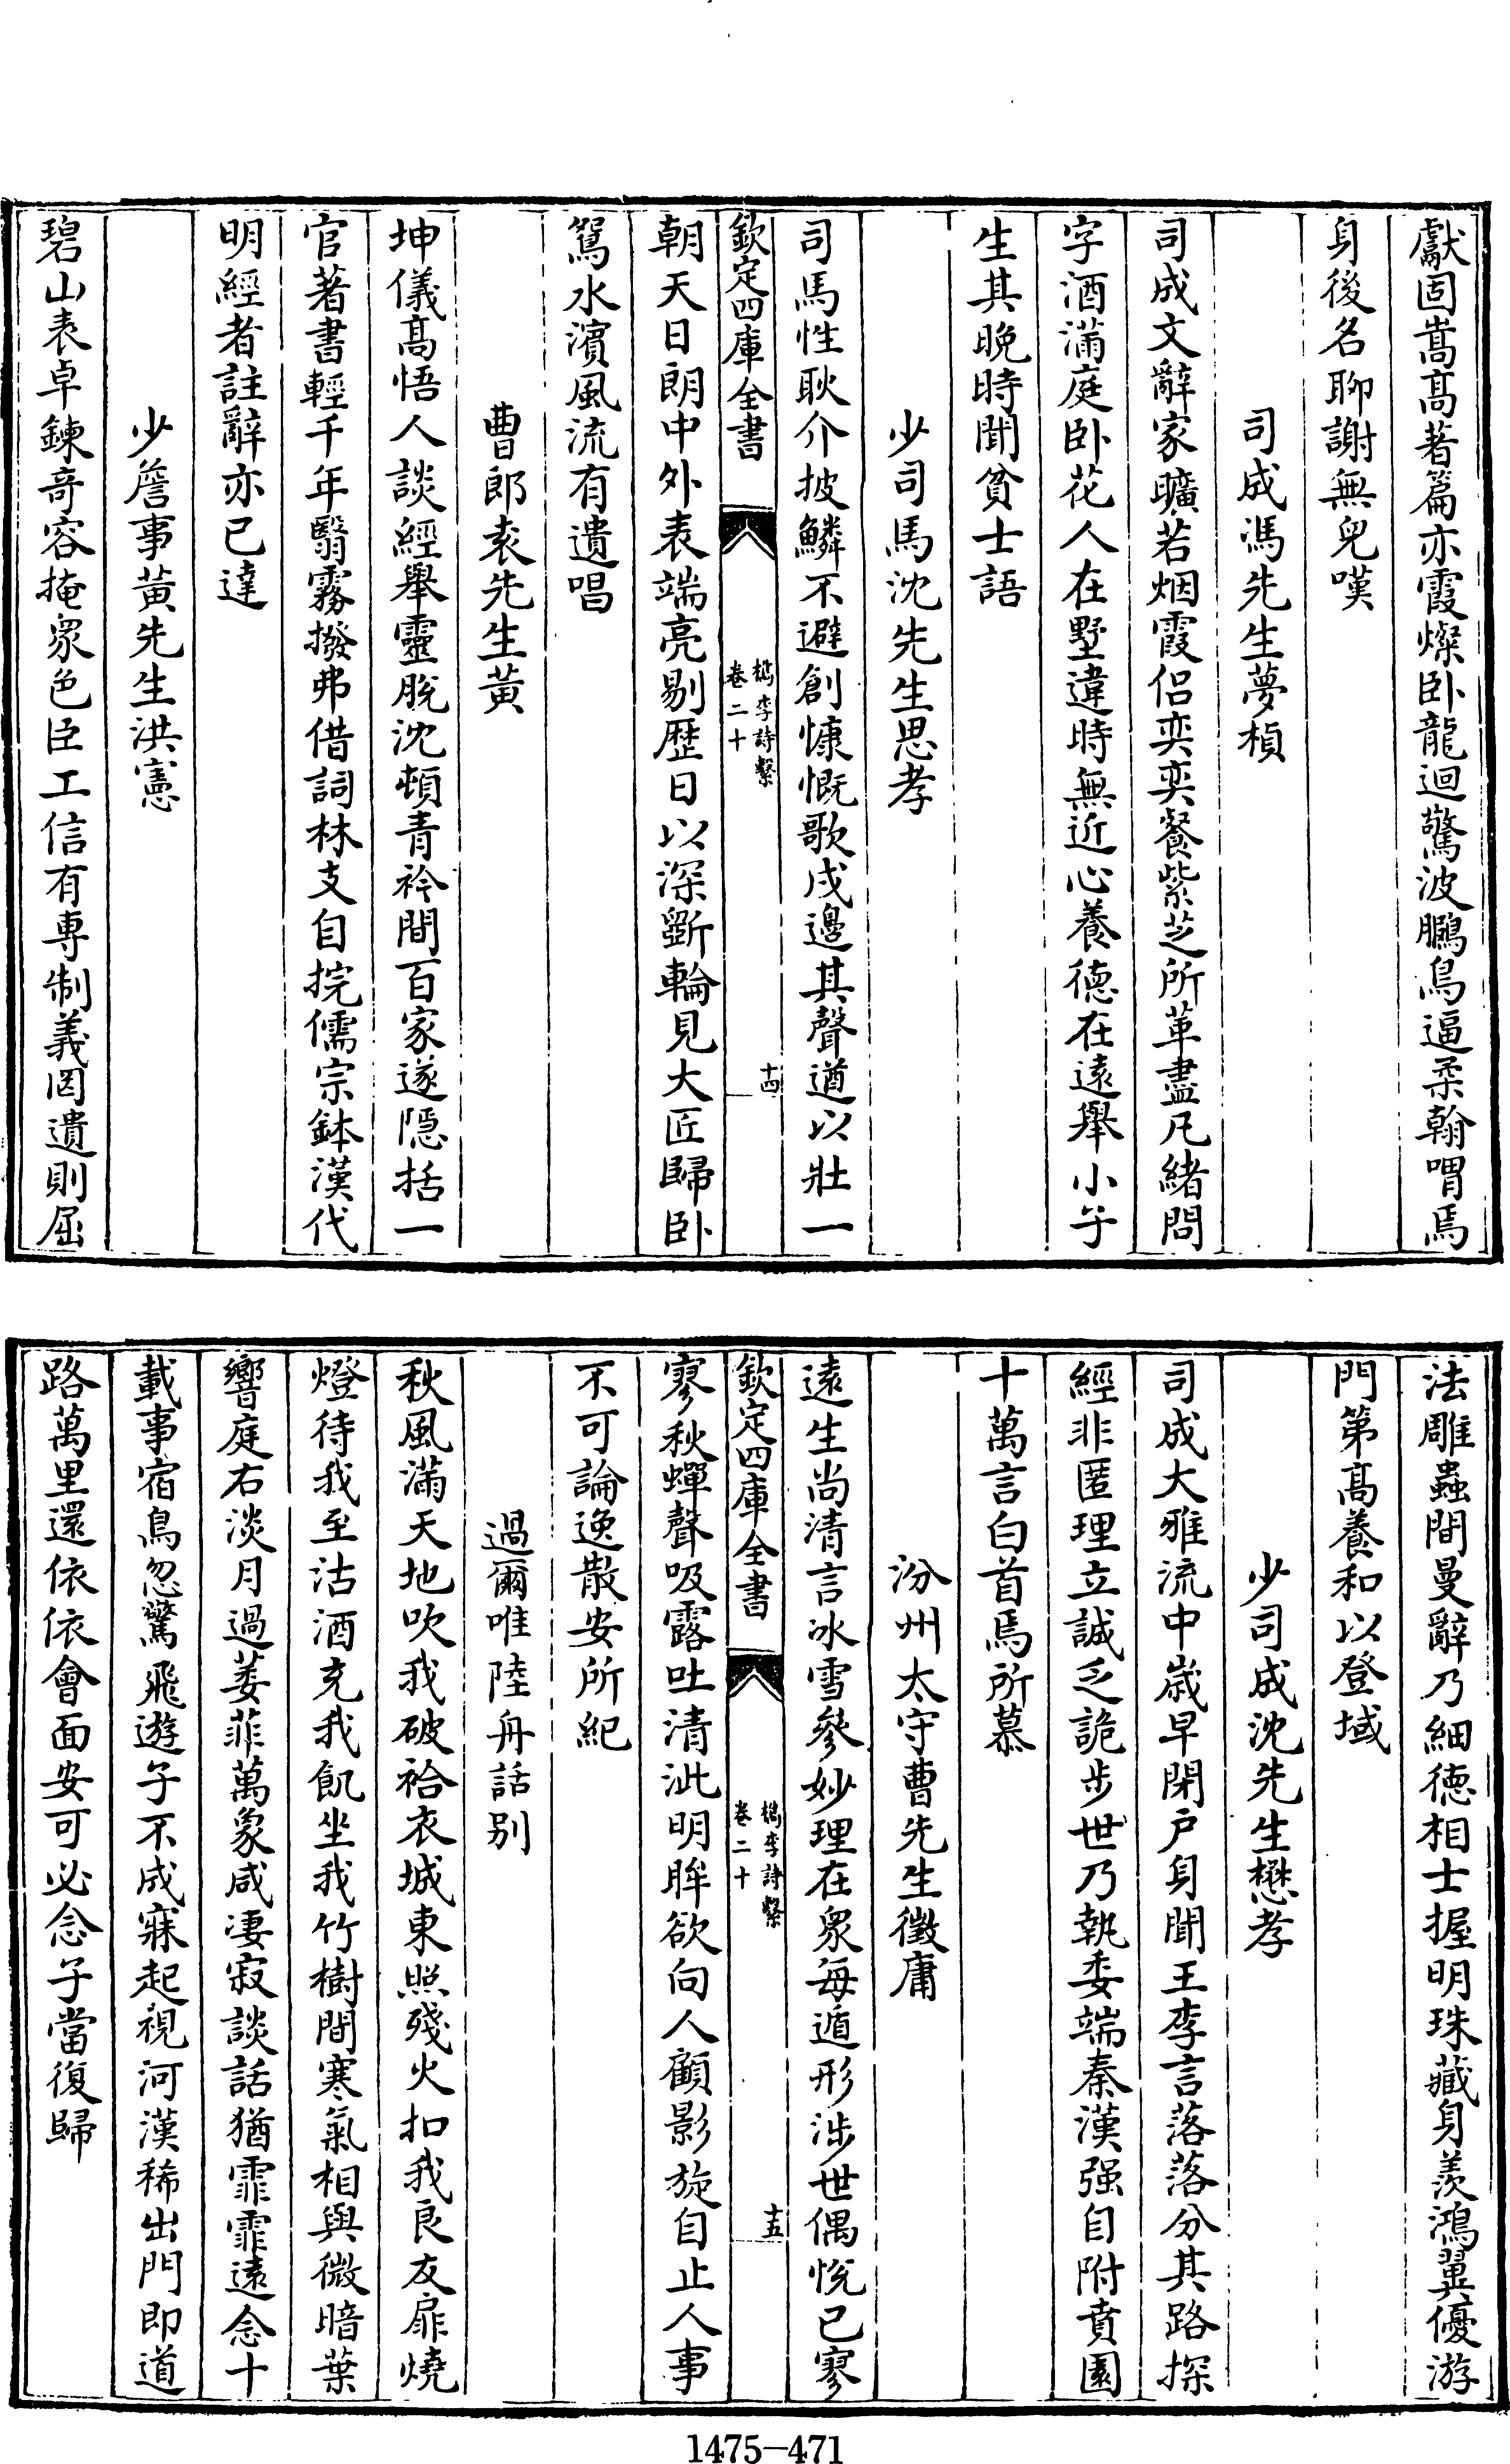 獻固嵩髙著篇亦霞燦卧龍迴驚波鵩鳥逼柔翰喟焉
身後名聊謝無皃嘆
司成馮先生夢楨
司成文辭家曠若烟霞侣奕奕餐紫芝所革盡凡緒問
字酒滿庭卧花人在墅違時無近心養德在遠舉小子
生其晩時聞貧士語
少司馬沈先生思孝
司馬性耿介披鱗不避創慷慨歌戍邊其聲遒以壯一
欽定四庫全書
檇李詩繫
卷二十
十四
朝天日朗中外表端亮剔歴日以深斵輪見大匠歸卧
鴛水濱風流有遺唱
曹郎袁先生黄
坤儀髙悟人談經舉靈脱沈頓青衿間百家遂隠括一
官著書輕千年翳霧撥弗借詞林支自捖儒宗鉢漢代
明經者註辭亦已達
少詹事黄先生洪憲
碧山表卓鍊竒容掩衆色臣工信有専制義罔遺則屈
法雕蟲間曼辭乃細徳相士握明珠藏身羨鴻翼優游
門第髙養和以登域
少司成沈先生懋孝
司成大雅流中歳早閉户身聞王李言落落分其路探
經非匿理立誠乏詭步世乃執委端秦漢强自附賁園
十萬言白首焉所慕
汾州太守曹先生徵庸
遠生尚清言冰雪參妙理在衆每遁形涉世偶恱已寥
欽定四庫全書
檇李詩繫
卷二十
十五
寥秋蟬聲吸露吐清泚明眸欲向人顧影旋自止人事
不可論逸散安所紀
過爾唯陸舟話别
秋風滿天地吹我破袷衣城東照殘火扣我良友扉燒
燈待我至沽酒充我飢坐我竹樹間寒氣相與微暗葉
響庭右淡月過萎菲萬象咸凄寂談話猶霏霏遠念十
載事宿鳥忽驚飛遊子不成寐起視河漢稀出門即道
路萬里還依依會面安可必念子當復歸
1475—471